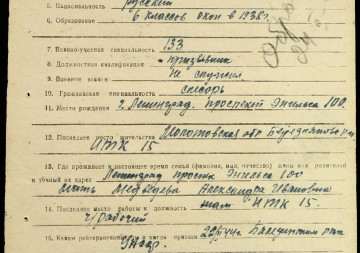 5. Национальность русский
6. Образование 6 классов окон в 1938г.
7. Военно-учетная специальность 133
8. Должностная квалификация призывник
9. Воинское звание не служил
10. Гражданская специальность слесарь
11. Место рождения г. Ленинград. проспект Энгельса 100.
12. Последнее место жительства Молотовская обл
ИТК 15
13. Где проживает в настоящее время семья (фамилия, имя, отчество) жены или родителей
и точный их адрес Ленинград просп Энгельса 100
мать Медведева Александра Ивановна
14. Последнее место работы и должность там ИТК 15.
рабочий
15. Каким райвоенкоматом и когда призван